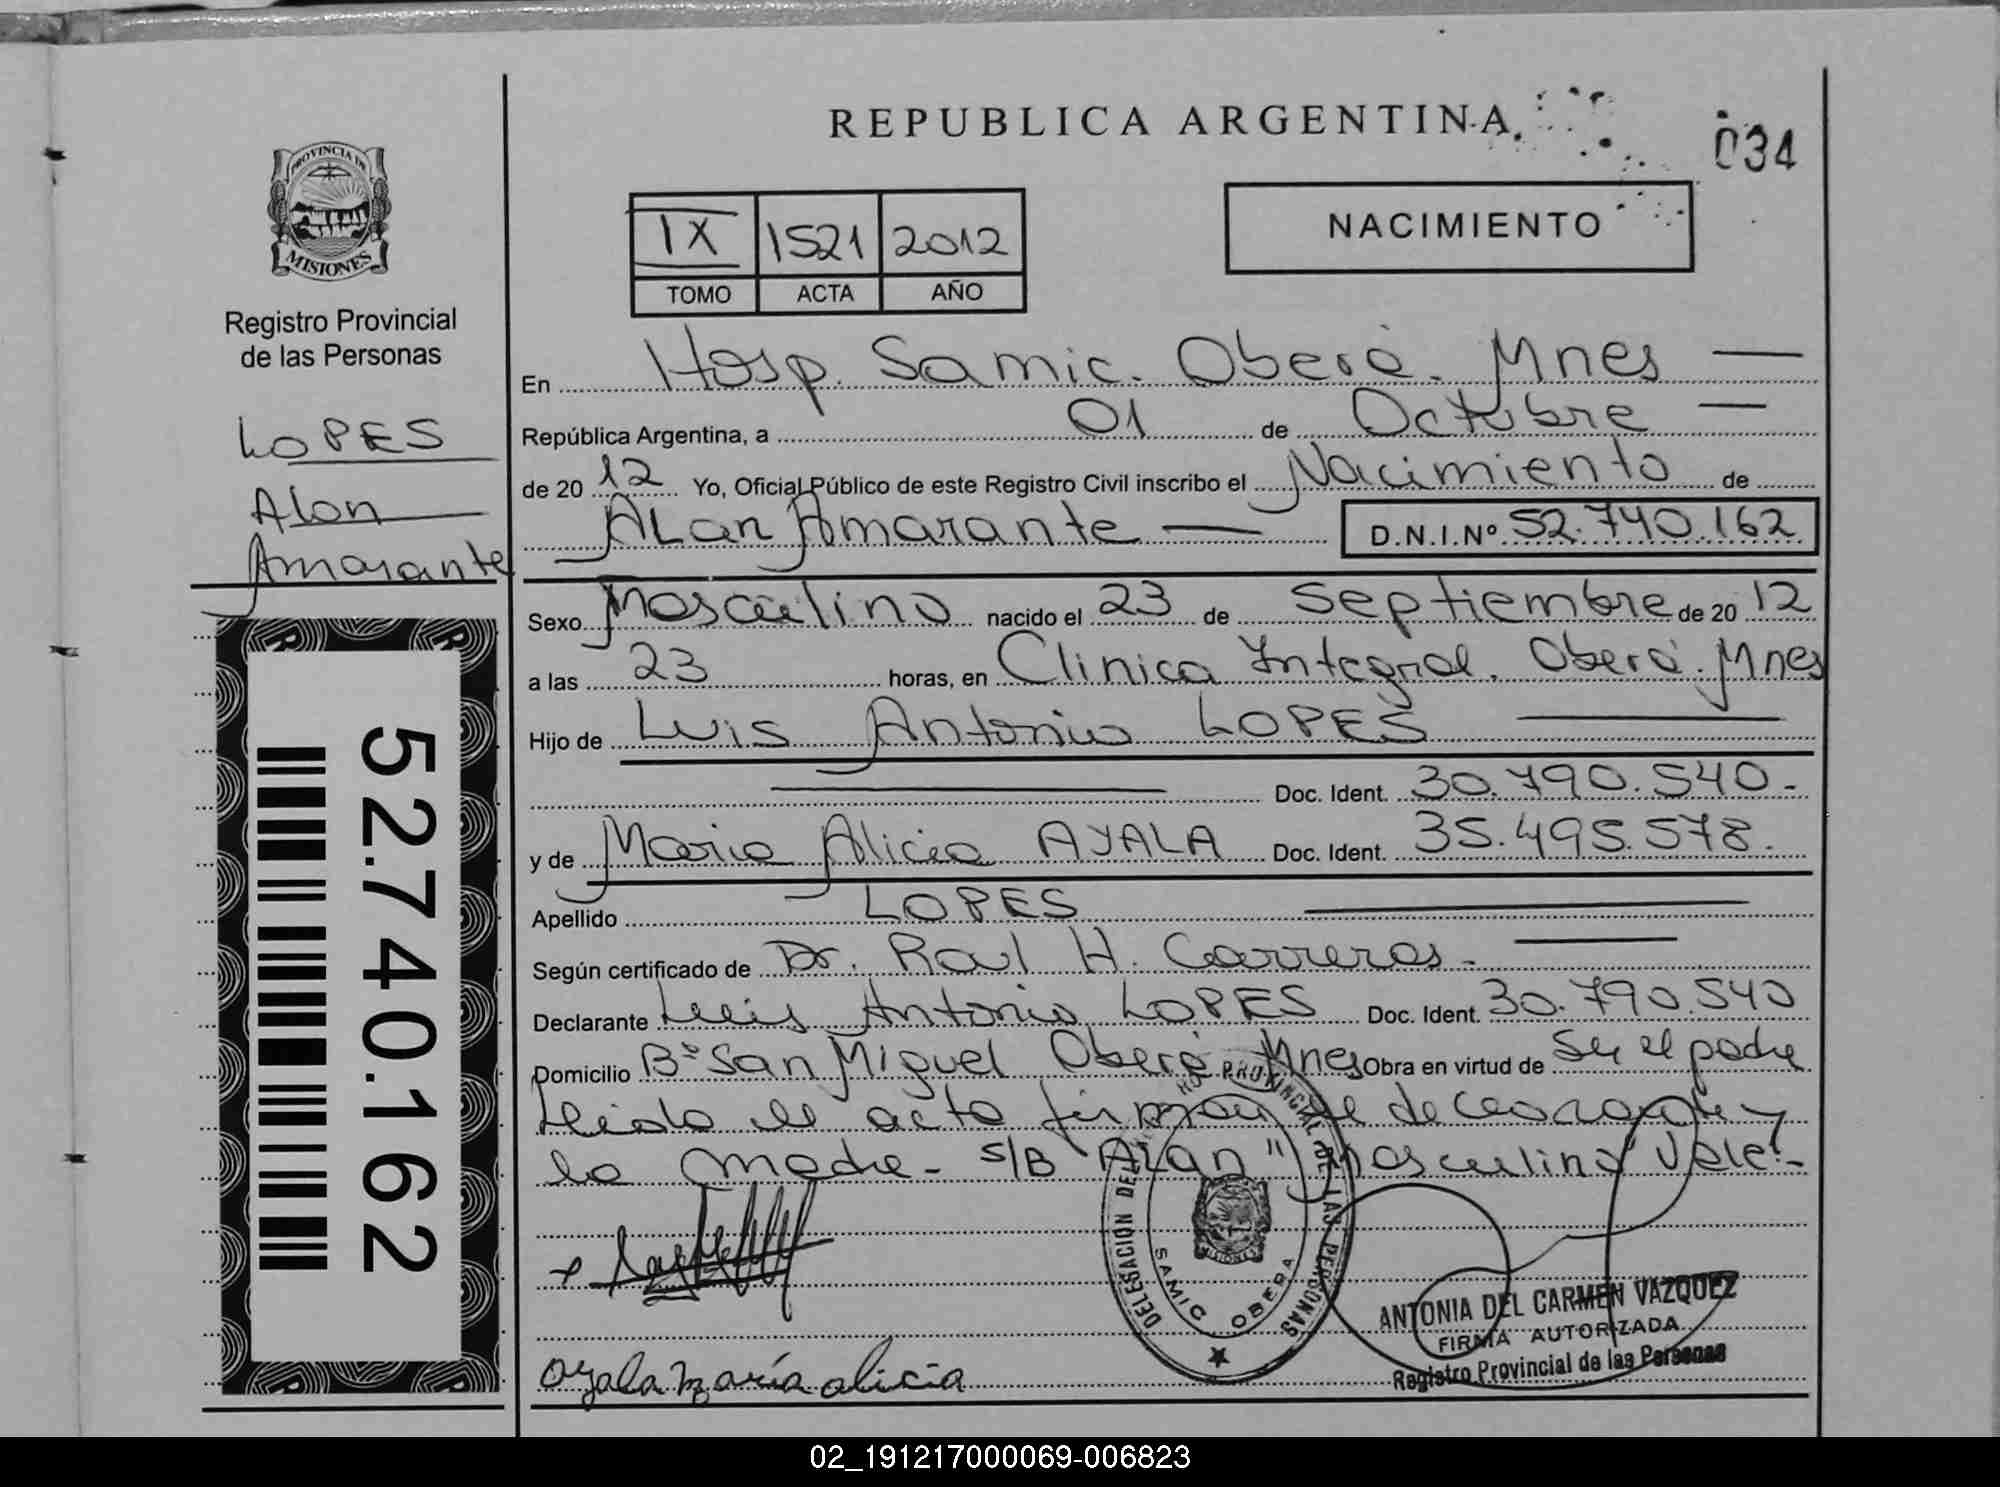 REPUBLICA ARGENTINA
034
PROVINCIA DE
MISIONES
Registro Provincial
de las Personas
LOPES
Alan
Amarante
52.740.162
IX 1521 2012
TOMO ACTA AÑO
NACIMIENTO
En Hosp. Samic. Oberá. Mnes
República Argentina, a 01 de Octubre
de 20 12 Yo, Oficial Público de este Registro Civil inscribo el Nacimiento de
ALan Amarante D.N.I.Nº 52.740.162
Sexo Masculino nacido el 23 de Septiembre de 20 12
a las 23 horas, en Clinica Integral. Oberá. Mnes
Hijo de Luis Antonio LOPES
Doc. Ident. 30.790.540-
y de Maria Alicia AYALA Doc. Ident. 35.495.578.
Apellido LOPES
Según certificado de Dr. Raul H. Carreras-
Declarante Luis Antonio LOPES Doc. Ident. 30.790.540
Domicilio Bº San Miguel Oberá Mnes Obra en virtud de Ser el padre
Leida el acta firman el declarante y
la madre- S/B "ALan" Masculino Vale!-
PROVINCIAL DE LAS PERSONAS
DELEGACION DEL
SAMIC OBERA
MISIONES
ANTONIA DEL CARMEN VAZQUEZ
FIRMA AUTORIZADA
Registro Provincial de las Personas
ayala maría alicia
02_191217000069-006823